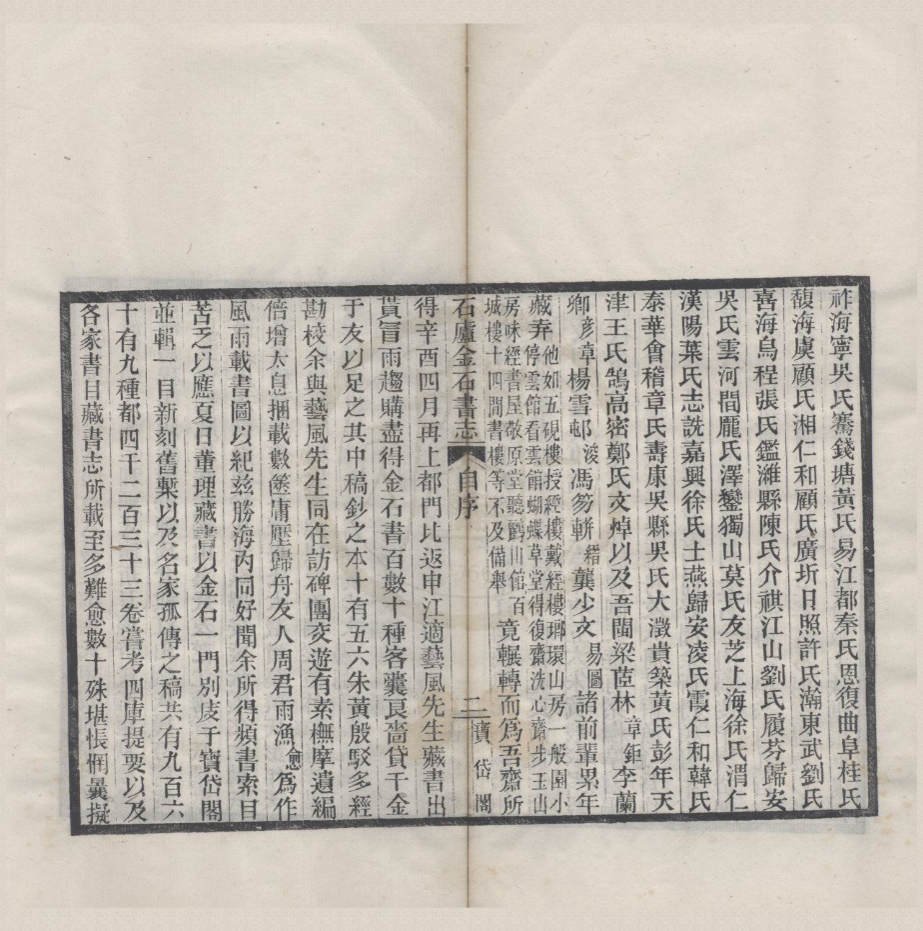 祚海寧吳氏騫錢塘黃氏易江都秦氏恩復曲阜桂氏
馥海虞顧氏湘仁和顧氏廣圻日照許氏瀚東武劉氏
喜海烏程張氏鑑濰縣陳氏介祺江山劉氏履芬歸安
吳氏雲河間龐氏澤鑾獨山莫氏友芝上海徐氏渭仁
漢陽葉氏志詵嘉興徐氏士燕歸安凌氏霞仁和韓氏
泰華會稽章氏壽康吳縣吳氏大澂貴築黃氏彭年天
津王氏鵠高密鄭氏文焯以及吾閩梁茝林章鉅李蘭
卿彥章楊雪邨浚馮笏軿縉龔少文易圖諸前輩累年
藏弆他如五硯樓授經樓戴經樓瑯環山房一般園小
停雲館看雲館蝴蝶草堂得復齋洗心齋步玉山
房味經書屋敬原堂聽鸝山館百
城樓十四間書樓等不及備舉竟輾轉而爲吾齋所
石廬金石書志 自序 二 寶岱閣
得辛酉四月再上都門比返申江適藝風先生藏書出
貰冒雨趨購盡得金石書百數十種客囊艮嗇貸千金
于友以足之其中稿鈔之本十有五六朱黃殷駁多經
勘校余與藝風先生同在訪碑團交遊有素橅摩遺編
倍增太息捆載數篋庸壓歸舟友人周君雨漁愈爲作
風雨載書圖以紀茲勝海內同好聞余所得頻書索目
苦乏以應夏日董理藏書以金石一門別庋于寶岱閣
並輯一目新刻舊槧以及名家孤傳之稿共有九百六
十有九種都四千二百三十三卷嘗考四庫提要以及
各家書目藏書志所載至多難愈數十殊堪悵惘曩擬